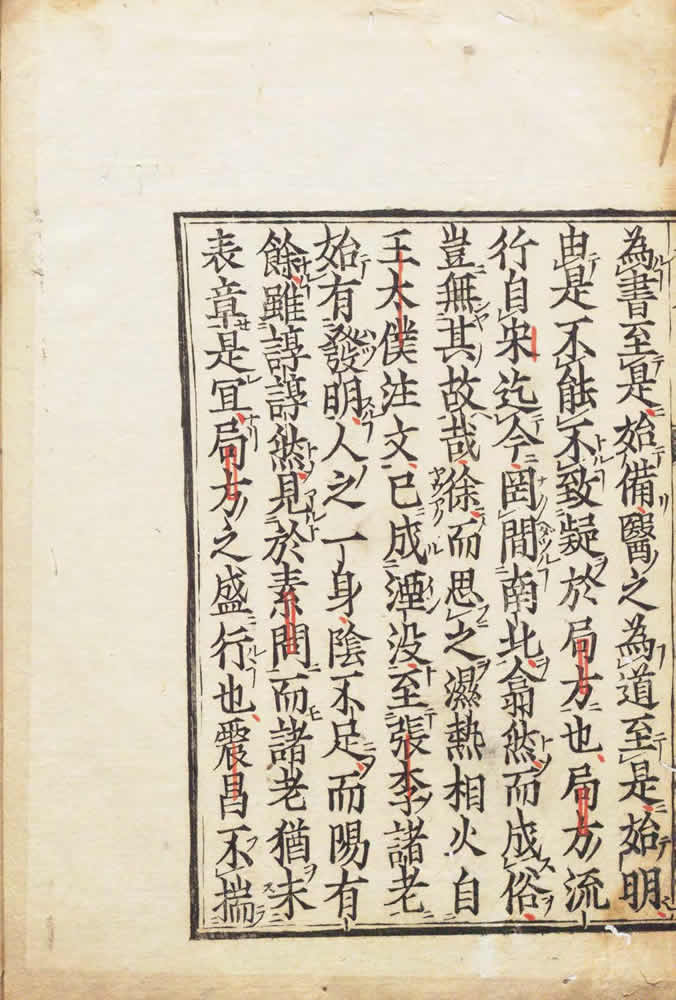 為書至是始備醫之為道至是始明
由是不能不致疑於局方也局方流
行自宋迄今罔間南北翕然而成俗
豈無其故哉徐而思之濕熱相火自
王太僕注文已成湮没至張李諸老
始有發明人之一身陰不足而陽有
餘雖諄諄然見於素問而諸老猶未
表章是冝局方之盛行也震昌不揣